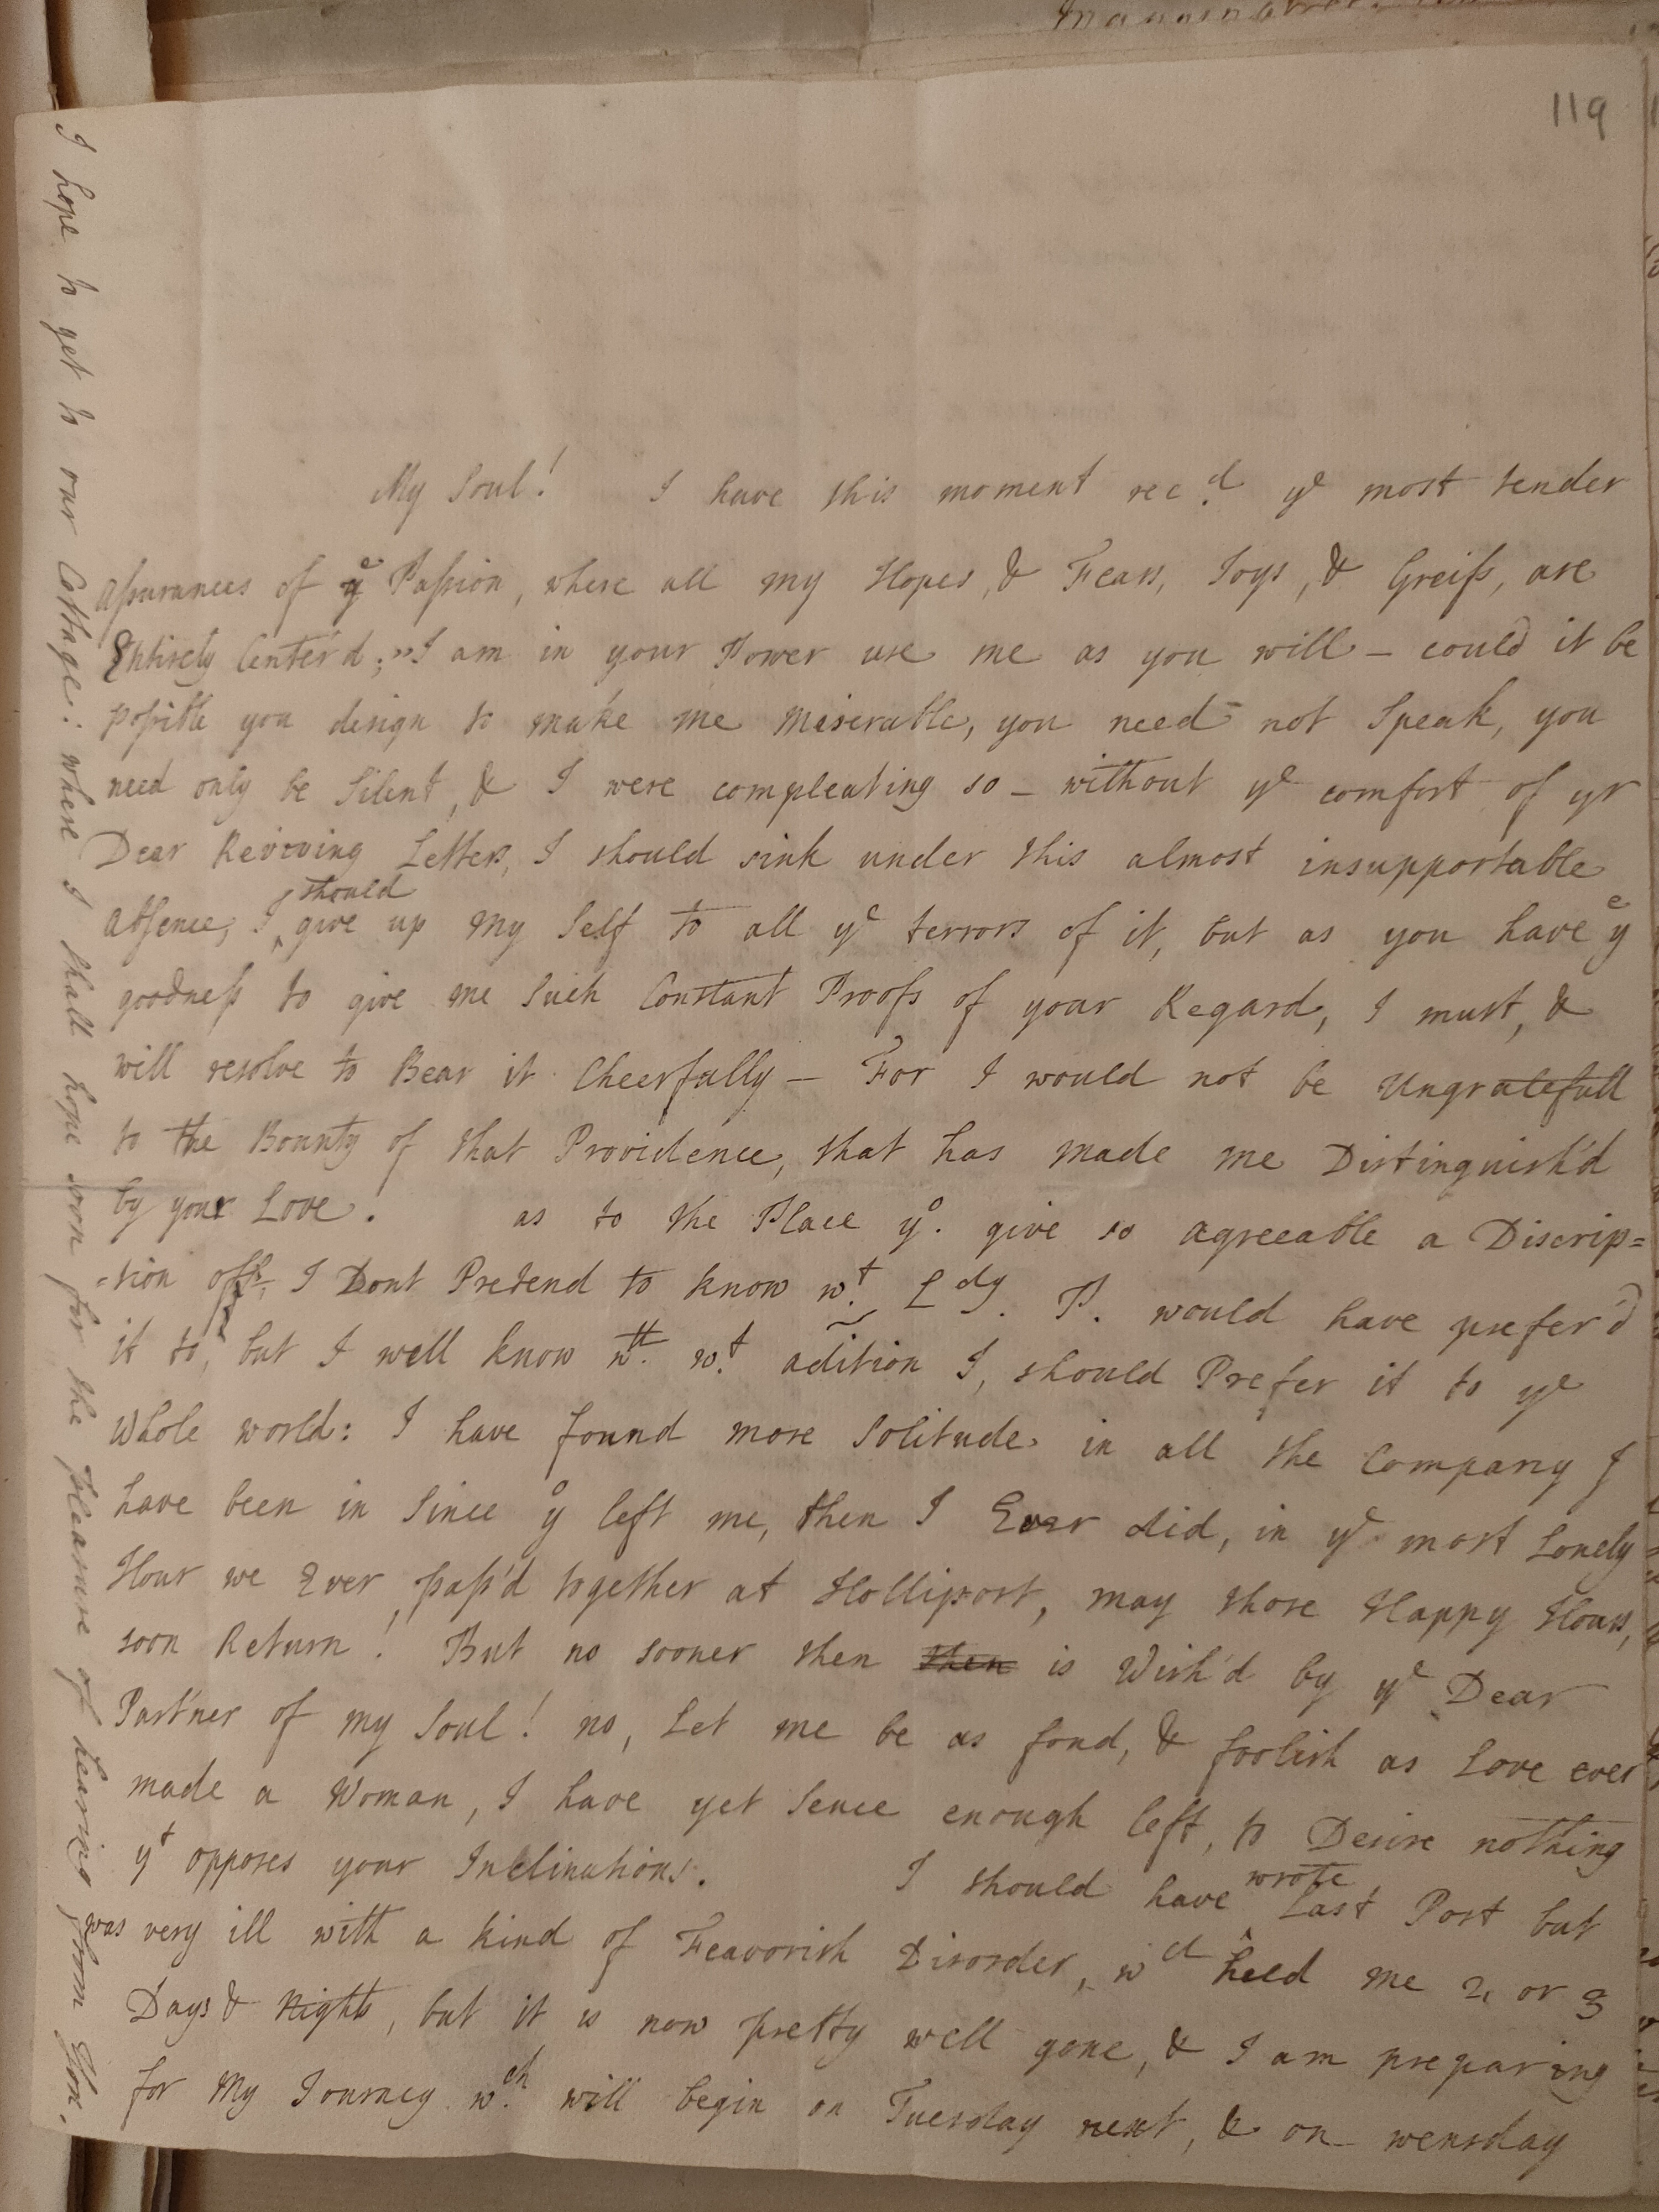 119
My Soul! I have this moment rec.d ye most tender
assurances of ye Passion, where all my Hopes, & Fears, Joys, & Greifs, are
Entirely Center'd; I am in your Power use me as you will – could it be
possible you design to make me miserable, you need not Speak, you
need only be Silent, & I were compleating so – without ye comfort of yr
Dear Reviving Letters, I should sink under this almost insupportable
absence, I should give up my Self to all ye terrors of it, but as you have ye
goodness to give me Such Constant Proofs of your Regard, I must, &
will resolve to Bear it Cheerfully – For I would not be Ungratefull
to the Bounty of that Providence, that has made me Distinguish'd
by your Love. as to the Place yo. give so agreeable a Discrip=
=tion off, I Dont Pretend to know wt. Ldy. P. would have prefer'd
it to, but I well know wth. wt. adition I, should Prefer it to ye
Whole world: I have found more Solitude in all the Company I
have been in Since yo left me, then I Ever did, in ye most Lonely
Hour we Ever pass'd together at Holliport, may those Happy Hours,
soon Return! But no sooner then then is Wish'd by ye Dear
Partner of my Soul! no, Let me be as fond, & foolish as Love ever
made a Woman, I have yet Sence enough left, to Desire nothing
yt opposes your Inclinations. I should have wrote Last Post but
was very ill with a kind of Feavorish Disorder, wch held me 2, or 3
Days & Nights, but it is now pretty well gone, & I am preparing
for my Journey wch. will begin on Tuesday next, & on wensday
I hope to get to our Cottage: where I shall hope soon for the pleasure of hearing from You.